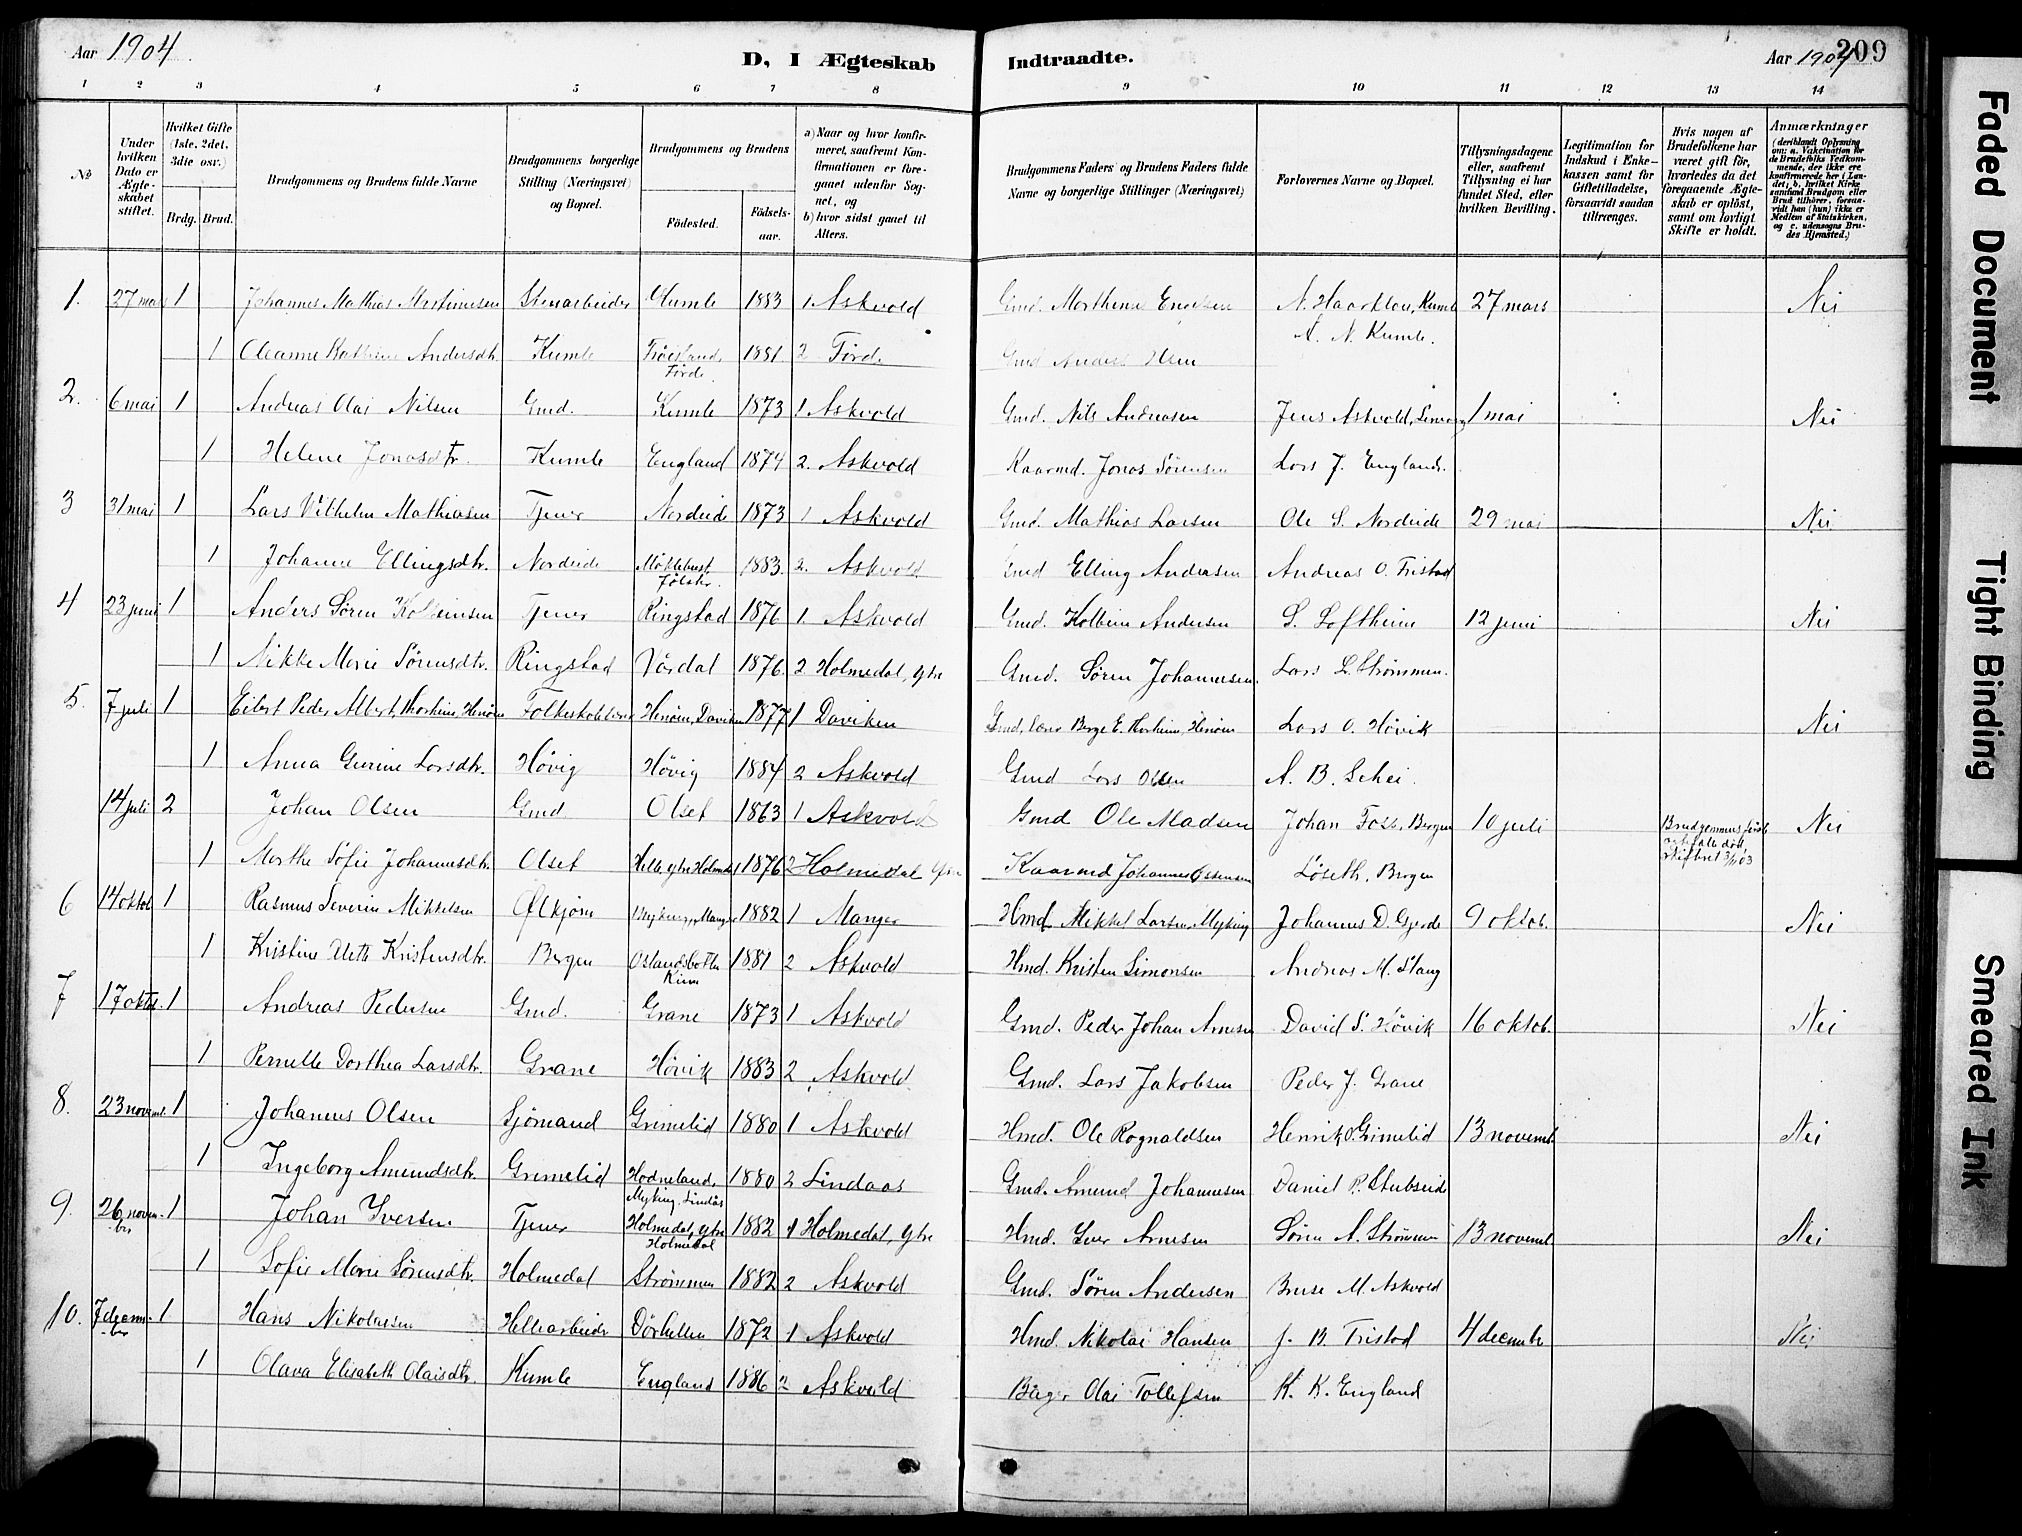 Aar 1904.
D, I Ægteskab Indtraadte.
Aar 1904
209
1 2 3 4 5 6 7 8 9 10 11 12 13 14
No
Under hvilken Dato er Ægteskabet stiftet.
Hvilket Gifte (1ste, 2det, 3die osv.)
Brdg. Brud.
Brudgommens og Brudens fulde Navne
Brudgommens borgerlige Stilling (Næringsvei) og Bopæl.
Brudgommens og Brudens
Fødested.
Fødselsaar.
a) Naar og hvor konfirmeret, saafremt Konfirmationen er foregaaet udenfor Sognet, og
b) hvor sidst gaaet til Alters.
Brudgommens Faders og Brudens Faders fulde Navne og borgerlige Stillinger (Næringsvei)
Forlovernes Navne og Bopæl.
Tillysningsdagene eller, saafremt Tillysning ei har fundet Sted, efter hvilken Bevilling.
Legitimation for Indskud i Enkekassen samt for Giftetilladelse, forsaavidt saadan tiltrænges.
Hvis nogen af Brudefolkene har været gift før, hvorledes da det foregaaende Ægteskab er opløst, samt om lovligt Skifte er holdt.
Anmærkninger (deriblandt Oplysning om: a. Vakcination for de Brudefolks Vedkommende, der ikke ere konfirmerede her i Landet, b. hvilket Kirkesamfund Brudgom eller Brud tilhører, forsaavidt han (hun) ikke er Medlem af Statskirken, og c. udensogns Brudes Hjemsted.)
1. 27 mars 1 Johannes Mathias Martinusen Stenarbeider Kumle 1883 1 Askvold Gmd. N. Haarklau, Kumle 27 mars Nei
1 Oleanne Kathrine Andersdtr. Kumle Førde. 1881 2 Førd. Gmd Anders A. N. Kumle.
2. 6 mai 1 Andreas Olai Nilsen Gmd. Kumle 1873 1 Askvold Gmd. Nils Andreasen Jens Askvold, 1 mai Nei
1 Helene Jonasdtr. Kumle England 1874 2. Askvold Kaarmd. Jonas Sørensen Lars J. England.
3 31 mai 1 Lars Vilhelm Mathiasen Tjener Nordeide 1873 1 Askvold Gmd. Mathias Larsen Ole S. Nordeide 29 mai Nei
1 Johanne Ellingsdtr. Nordeide Jølster. 1883. 2. Askvold Gmd Elling Andersen Andreas O. Tristad
4 23 juni 1 Anders Søren Kolbeinsen Tjener Ringstad 1876 1. Askvold Gmd. Kolbein Andersen S. Loftheim 12 juni Nei
1 Nikke Marie Sørensdtr. Ringstad Vårdal 1876. 2 Holmedal, ytre Gmd. Søren Johannesen. Lars L. Strømmen.
5. 7 juli 1 Eibert Peder Albert Thorheim, Henøen Folkeskolelærer Henøen, Daviken 1877 1 Daviken Gmd, lærer Berge E. Thorheim, Henøen Lars O. Høvik Nei
1 Anna Gurine Larsdtr. Høvig Høvig 1884 2 Askvold Gmd Lars Olsen A. B. Schei.
14 juli 2 Johan Olsen Gmd Olset 1863 1 Askvold Gmd Ole Madsen Johan Foss, Bergen 10 juli Brudgommens første skiftet 3/1 03 Nei
1 Merthe Sofie Johannesdtr. Olset Helle, ytre Holmedal 1876 2 Holmedal Ytre Kaarmd Johannes Løseth, Bergen
6 14 oktob 1 Rasmus Severin Mikkelsen Ølkjører Myking, Manger 1882 1 Manger Hmd Mikkel Larsen, Myking Johannes D. Gjerde 9 oktob. Nei
1 Kristine Kristensdtr. Bergen Oslandsbotten Kinn 1881 2 Askvold Hmd. Kristen Simonsen Andreas M. Stang
7 17 oktb. 1 Andreas Pedersen Gmd. Grane 1873 1 Askvold Gmd. Peder Johan Arnesen David S. Høvik 16 oktob. Nei
1 Pernelle Dorthea Larsdtr. Grane Høvik 1883 2 Askvold Gmd. Lars Jakobsen Peder J. Grane
8. 23 novem. 1 Johannes Olsen Sjømand Grimelid 1880 1 Askvold Hmd. Ole Rognaldsen Henrik O. Grimelid 13 novemb Nei
1 Ingeborg Amundsdtr. Grimelid Hodneland, Myking, Lindås 1880 2 Lindaas Gmd. Amund Johannesen Daniel P. Stubseid
9. 26 november 1 Johan Iversen Tjener Holmedal, ytre Holmedal 1882 1 Holmedal, ytre Hmd. Iver Arnesen Søren A. Strømmen 13 novemb Nei
1 Sofie Marie Sørensdtr. Holmedal Strømmen 1882 2 Askvold Gmd. Søren Andersen Brese M. Askvold
10. 7 december 1 Hans Nikolaisen Hellearbeider Dørhellen 1872 1 Askvold Hmd. Nikolai Hansen J. B. Tristad 4 decemb Nei
1 Olava Elisabeth Olaisdtr. Kumle England 1886 2 Askvold Olai Tollefsen K. K. England
Faded Document
Tight Binding
Smeared Ink